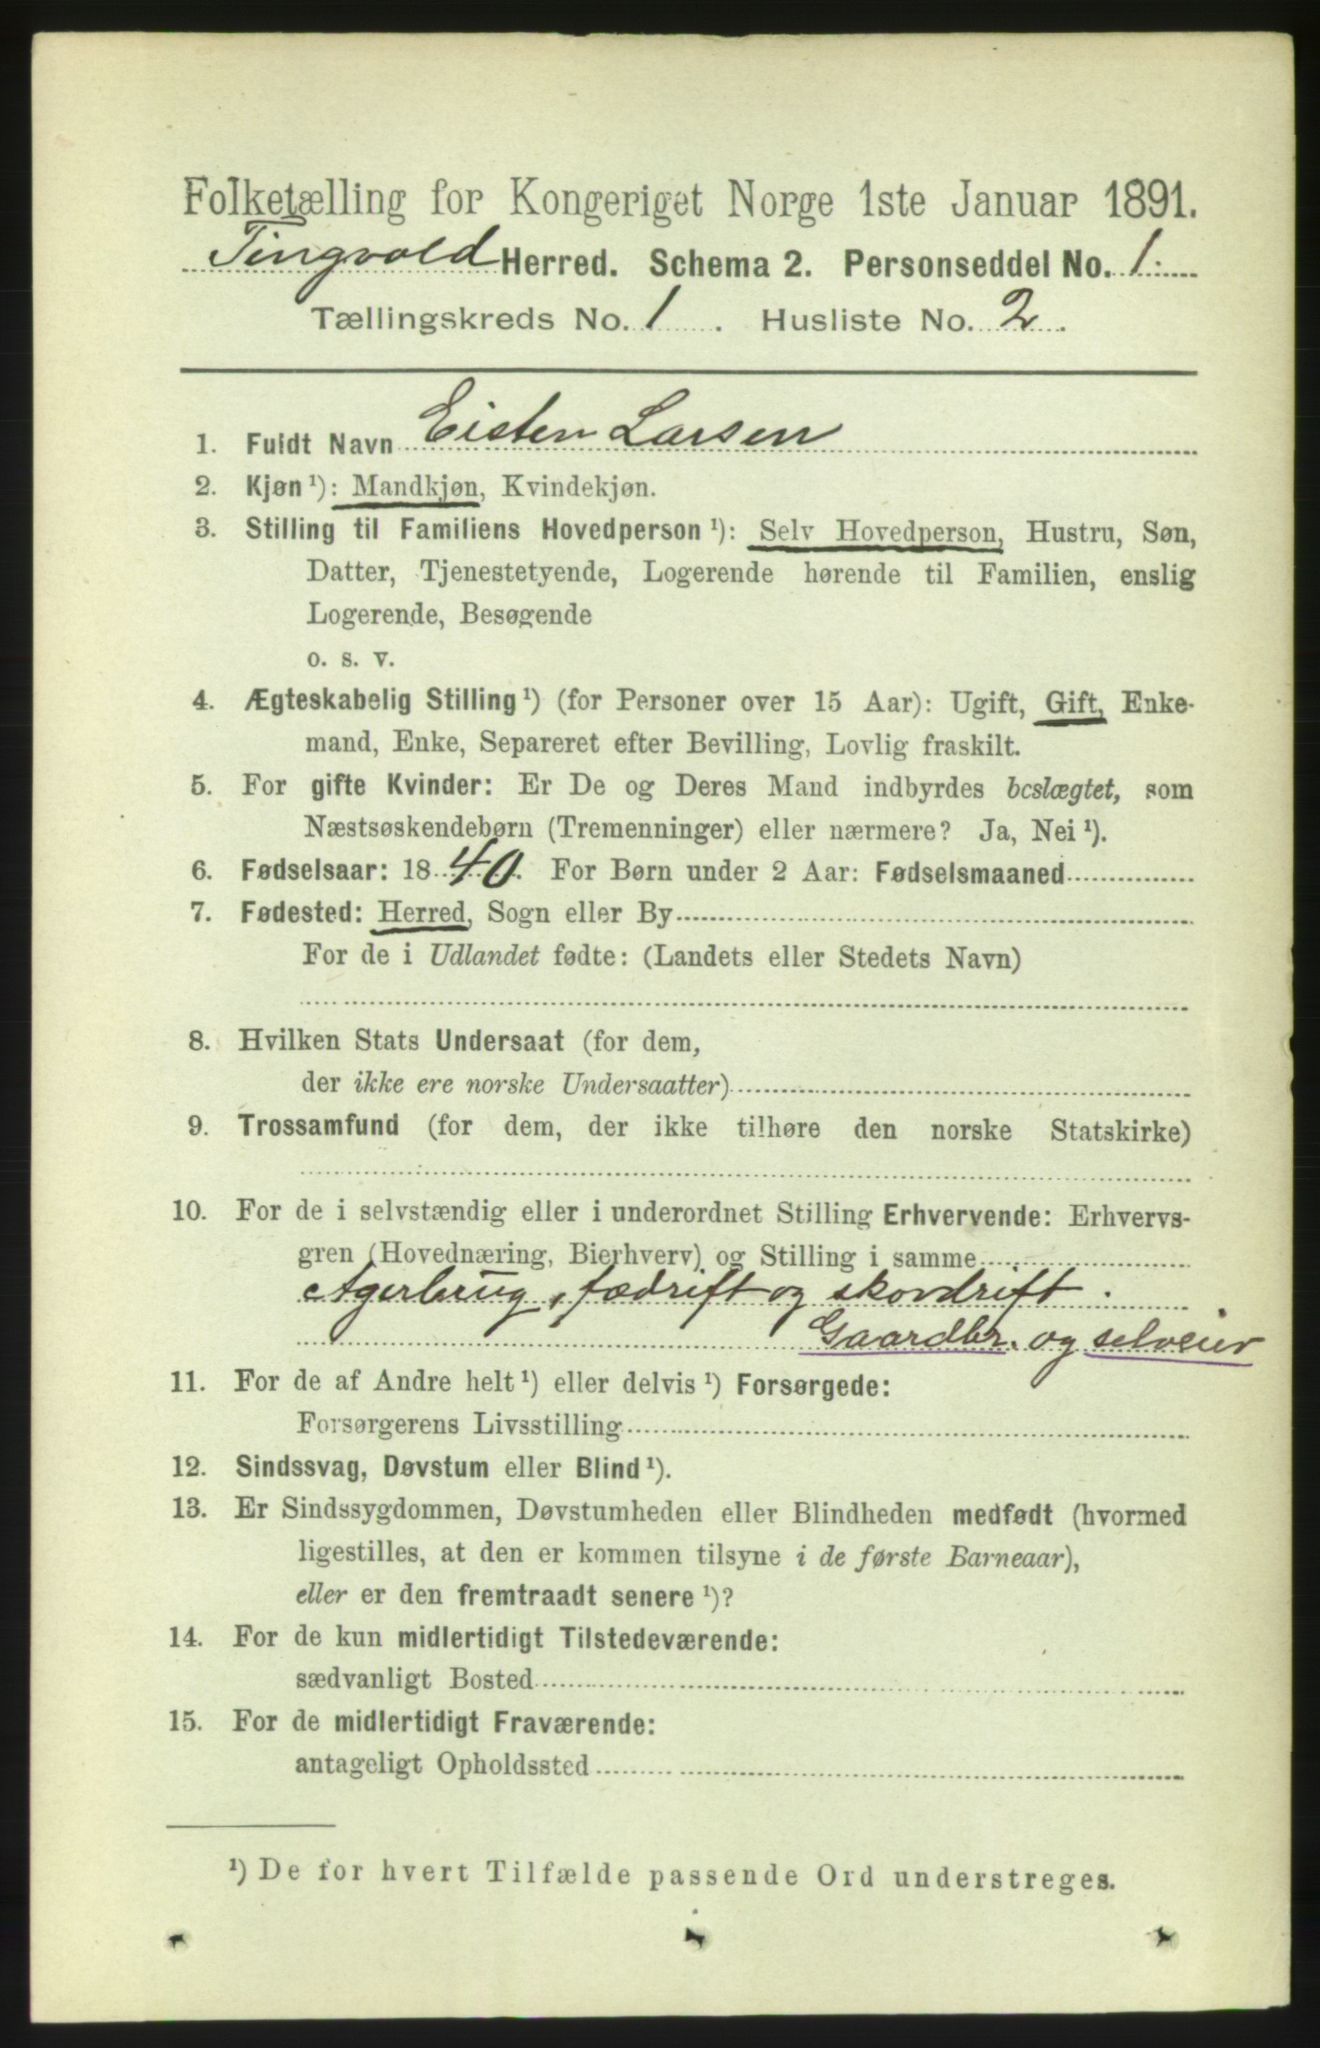 Folketælling for Kongeriget Norge 1ste Januar 1891.
Tingvold Herred. Schema 2. Personseddel No. 1.
Tællingskreds No. 1. Husliste No. 2.
1. Fuldt Navn Eisten Larsen
2. Kjøn ¹): Mandkjøn, Kvindekjøn.
3. Stilling til Familiens Hovedperson ¹): Selv Hovedperson, Hustru, Søn,
Datter, Tjenestetyende, Logerende hørende til Familien, enslig
Logerende, Besøgende
o. s. v.
4. Ægteskabelig Stilling ¹) (for Personer over 15 Aar): Ugift, Gift, Enke-
mand, Enke, Separeret efter Bevilling, Lovlig fraskilt.
5. For gifte Kvinder: Er De og Deres Mand indbyrdes beslægtet, som
Næstsøskendebørn (Tremenninger) eller nærmere? Ja, Nei ¹).
6. Fødselsaar: 1840. For Børn under 2 Aar: Fødselsmaaned
7. Fødested: Herred, Sogn eller By
For de i Udlandet fødte: (Landets eller Stedets Navn)
8. Hvilken Stats Undersaat (for dem,
der ikke ere norske Undersaatter)
9. Trossamfund (for dem, der ikke tilhøre den norske Statskirke)
10. For de i selvstændig eller i underordnet Stilling Erhvervende: Erhvervs-
gren (Hovednæring, Bierhverv) og Stilling i samme
Agerbrug, fædrift og skovdrift.
Gaardbr. og selveier
11. For de af Andre helt ¹) eller delvis ¹) Forsørgede:
Forsørgerens Livsstilling
12. Sindssvag, Døvstum eller Blind ¹).
13. Er Sindssygdommen, Døvstumheden eller Blindheden medfødt (hvormed
ligestilles, at den er kommen tilsyne i de første Barneaar),
eller er den fremtraadt senere ¹)?
14. For de kun midlertidigt Tilstedeværende:
sædvanligt Bosted
15. For de midlertidigt Fraværende:
antageligt Opholdssted
¹) De for hvert Tilfælde passende Ord understreges.